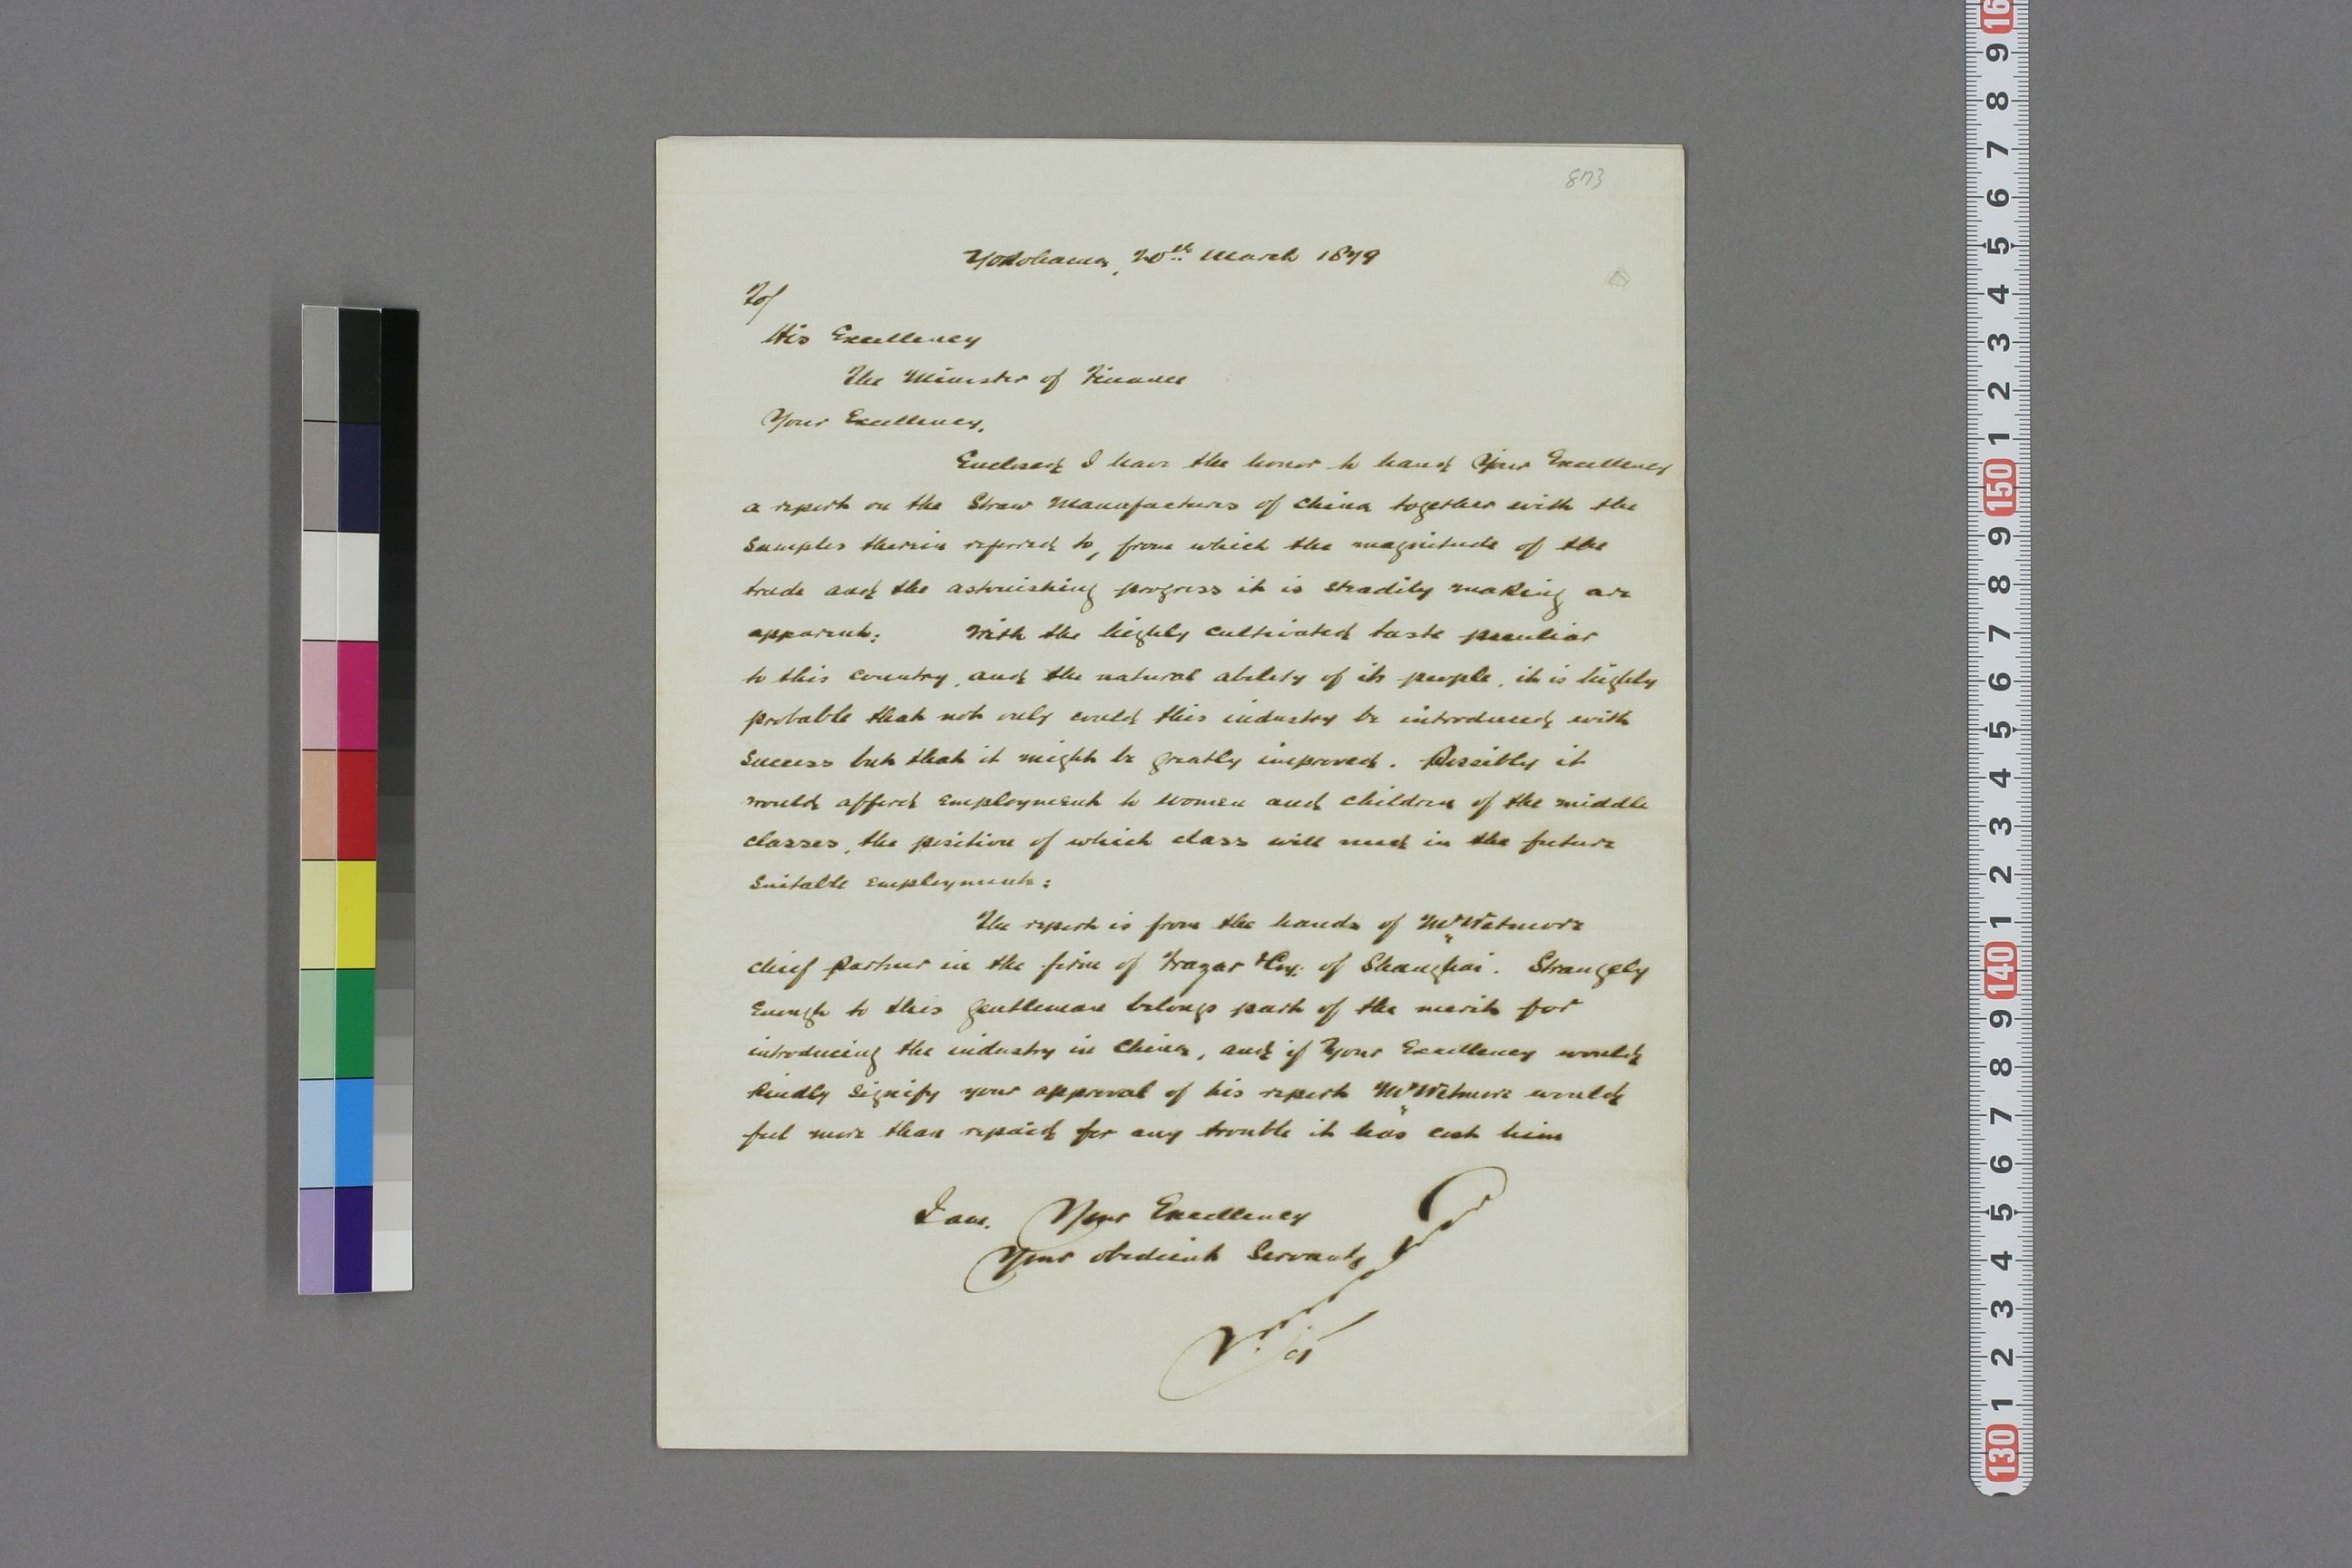 873
Yokohama, 20th March 1879
To/
His Excellency
The Minister of Finance
Your Excellency,
Enclosed I have the honor to hand Your Excellency
a report on the Straw Manufactures of China together with the
Samples therein referred to, from which the magnitude of the
trade and the astonishing progress it is steadily making are
apparent: With the highly cultivated taste peculiar
to this country, and the natural ability of its people, it is highly
probable that not only could this industry be introduced with
success but that it might be greatly improved. Possibly it
would afford employment to women and children of the middle
classes, the position of which class will need in the future
suitable employment:
The report is from the hands of Mr Wetmore
chief Partner in the firm of Frazar & Coy. of Shanghai. Strangely
enough to this gentleman belongs part of the merit for
introducing the industry in China, and if Your Excellency would
kindly signify your approval of his report Mr Wetmore would
feel more than repaid for any trouble it has cost him
I am. Your Excellency
Your obedient Servant,
16
9
8
7
6
5
4
3
2
1
150
9
8
7
6
5
4
3
2
1
140
9
8
7
6
5
4
3
2
1
130